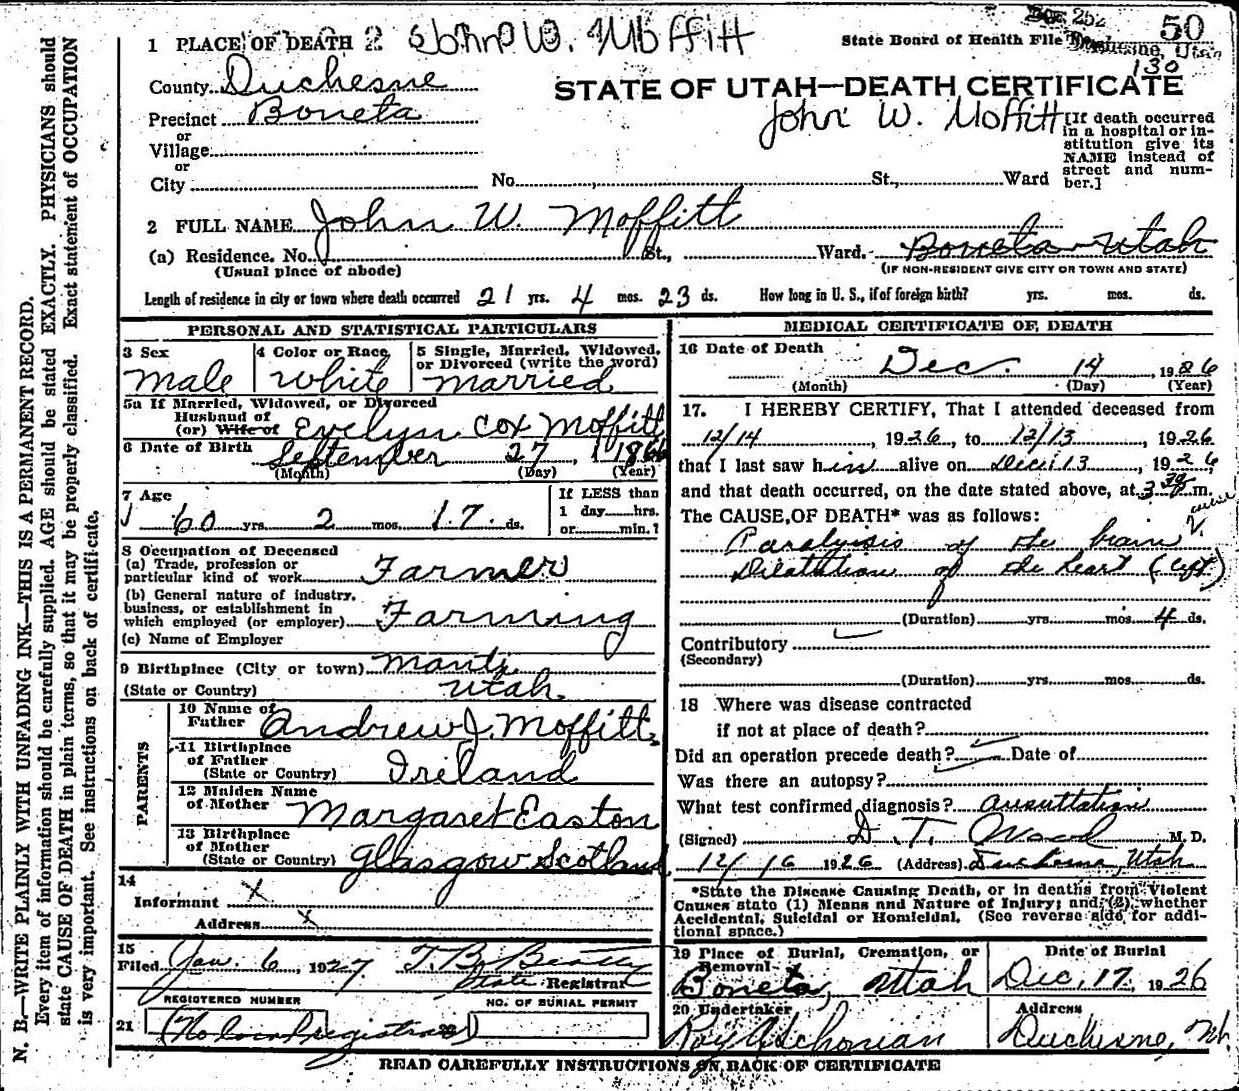 N. B.—WRITE PLAINLY WITH UNFADING INK—THIS IS A PERMANENT RECORD.
Every item of information should be carefully supplied. AGE should be stated EXACTLY. PHYSICIANS should
state CAUSE OF DEATH in plain terms, so that it may be properly classified. Exact statement of OCCUPATION
is very important. See instructions on back of certificate.
50
1 PLACE OF DEATH 2 John W. Moffitt
State Board of Health File No.
130
County Duchesne
STATE OF UTAH—DEATH CERTIFICATE
Precinct Boneta
John W. Moffitt
[If death occurred in a hospital or institution give its NAME instead of street and number.]
or
Village
or
City No. St., Ward
2 FULL NAME John W. Moffitt
(a) Residence. No. St., Ward. Boneta Utah
(Usual place of abode) (IF NON-RESIDENT GIVE CITY OR TOWN AND STATE)
Length of residence in city or town where death occurred 21 yrs. 4 mos. 23 ds. How long in U. S., if of foreign birth? yrs. mos. ds.
PERSONAL AND STATISTICAL PARTICULARS
3 Sex
Male
4 Color or Race
White
5 Single, Married, Widowed,
or Divorced (write the word)
Married
5a If Married, Widowed, or Divorced
Husband of
(or) Wife of Evelyn Cox Moffitt
6 Date of Birth September 27, 1866
(Month) (Day) (Year)
7 Age
60 yrs. 2 mos. 17 ds.
If LESS than
1 day hrs.
or min.?
8 Occupation of Deceased
(a) Trade, profession or
particular kind of work Farmer
(b) General nature of industry,
business, or establishment in
which employed (or employer) Farming
(c) Name of Employer
9 Birthplace (City or town) Manti
(State or Country) Utah
PARENTS
10 Name of
Father Andrew J. Moffitt
11 Birthplace
of Father
(State or Country) Ireland
12 Maiden Name
of Mother Margaret Easton
13 Birthplace
of Mother
(State or Country) Glasgow Scotland
14
Informant X
Address X
15
Filed Jan. 6, 1927 T. B. Beatty
State Registrar
REGISTERED NUMBER NO. OF BURIAL PERMIT
21 (No local registrar)
MEDICAL CERTIFICATE OF DEATH
16 Date of Death Dec. 14, 1926
(Month) (Day) (Year)
17. I HEREBY CERTIFY, That I attended deceased from
12/14, 1926, to 12/13, 1926
that I last saw him alive on Dec. 13, 1926,
and that death occurred, on the date stated above, at 3 30 m.
The CAUSE OF DEATH* was as follows:
Paralysis of the brain
Dilatation of the heart (left)
(Duration) yrs. mos. 4 ds.
Contributory
(Secondary)
(Duration) yrs. mos. ds.
18 Where was disease contracted
if not at place of death?
Did an operation precede death? Date of
Was there an autopsy?
What test confirmed diagnosis? auscultation
(Signed) D. T. M. D.
12/16 1926 (Address) Duchesne, Utah
*State the Disease Causing Death, or in deaths from Violent
Causes state (1) Means and Nature of Injury; and (2) whether
Accidental, Suicidal or Homicidal. (See reverse side for addi-
tional space.)
19 Place of Burial, Cremation, or
Removal
Boneta, Utah
Date of Burial
Dec. 17, 1926
20 Undertaker
Roy
Address
Duchesne, Ut.
READ CAREFULLY INSTRUCTIONS ON BACK OF CERTIFICATE